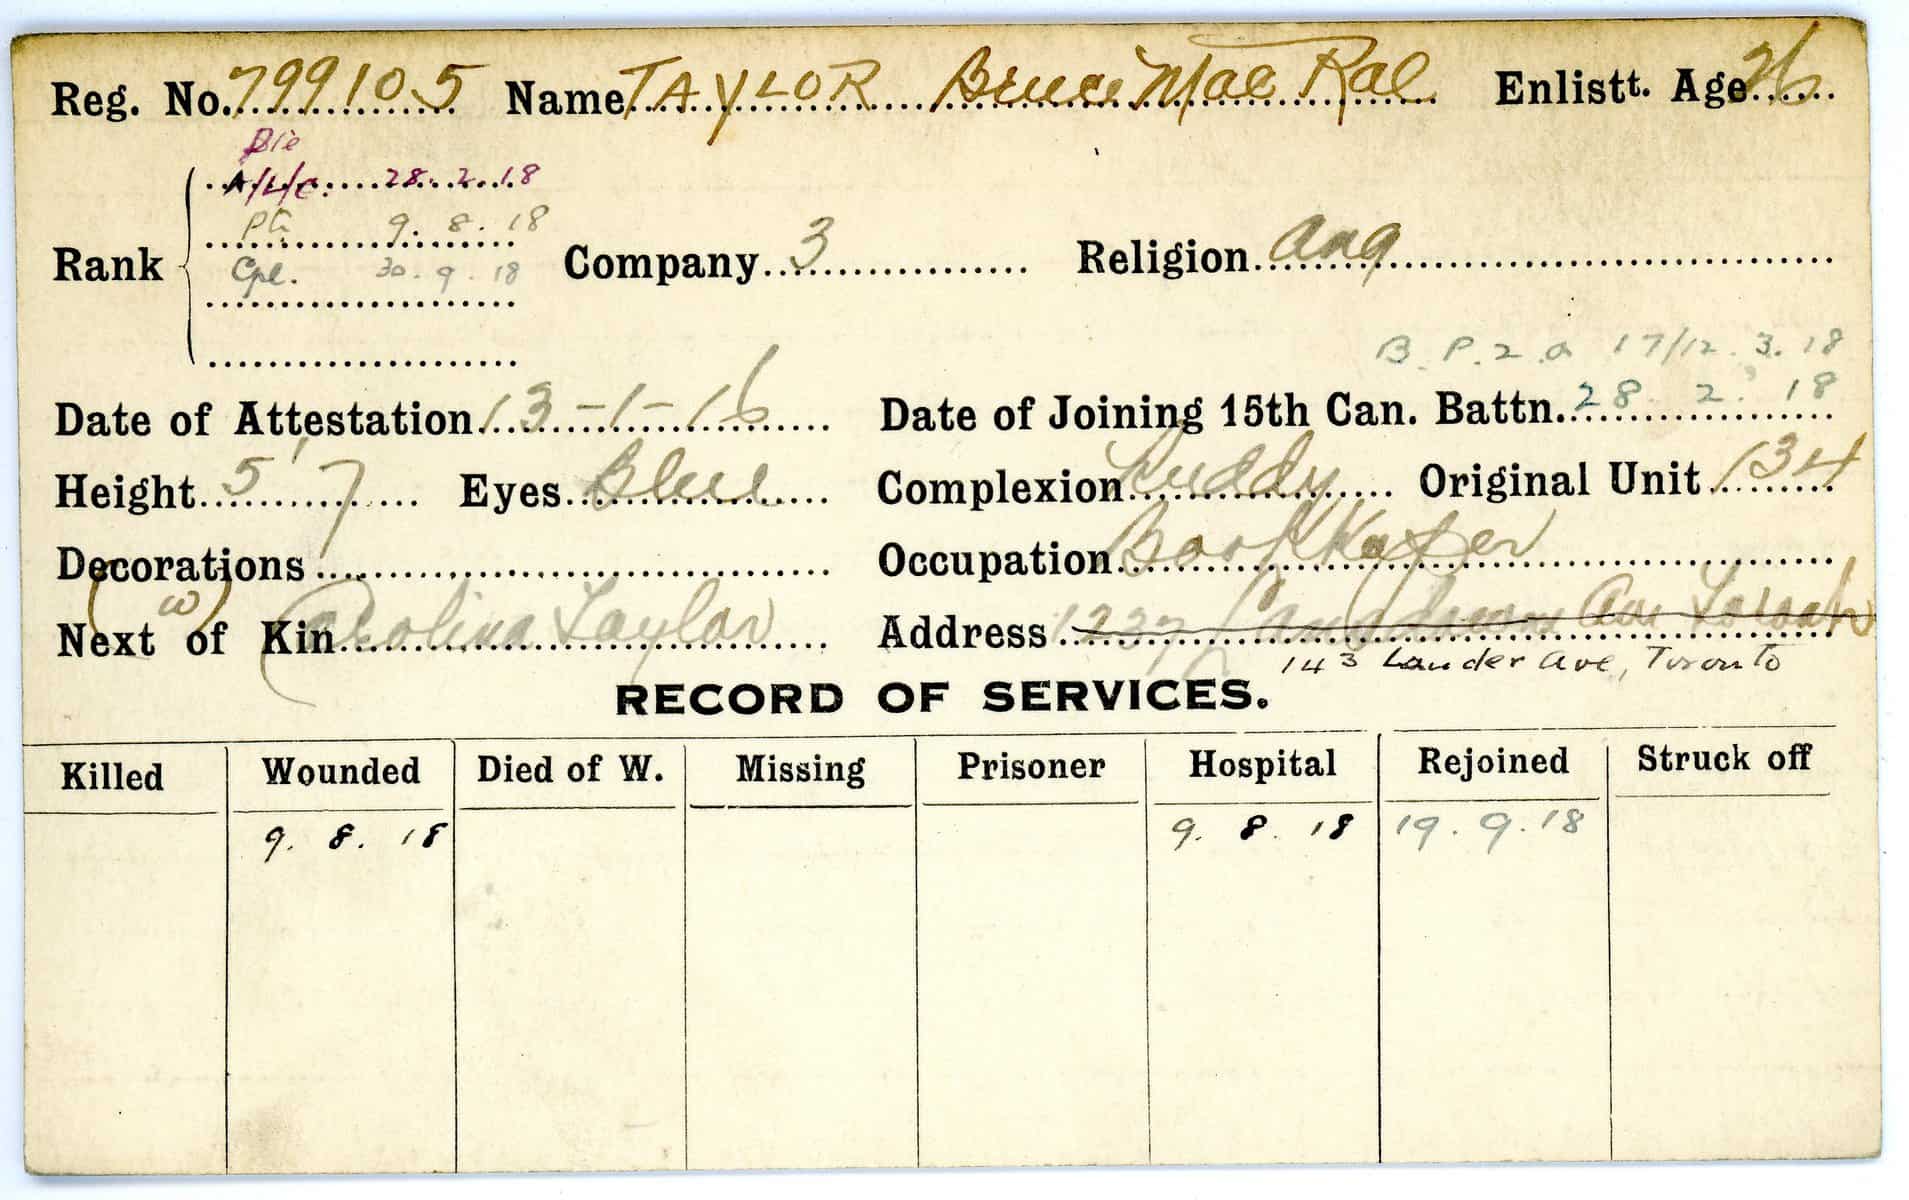 Reg. No. 799105 Name TAYLOR Bruce Mac Rae Enlistt. Age 26
Pte
A/L/C. 28. 2. 18
Pte 9. 8. 18
Rank Company 3 Religion Ang
Cpl. 30. 9. 18
B. P. 2. o 17/12. 3. 18
Date of Attestation 13-1-16 Date of Joining 15th Can. Battn. 28. 2. 18
Height 5' 7 Eyes Blue Complexion Ruddy Original Unit 134
Decorations Occupation Bookkeeper
(w)
Next of Kin Carolina Taylor Address 1237 Ave Toronto
143 Lauder Ave, Toronto
RECORD OF SERVICES.
Killed Wounded Died of W. Missing Prisoner Hospital Rejoined Struck off
9. 8. 18 9. 8. 18 19. 9. 18